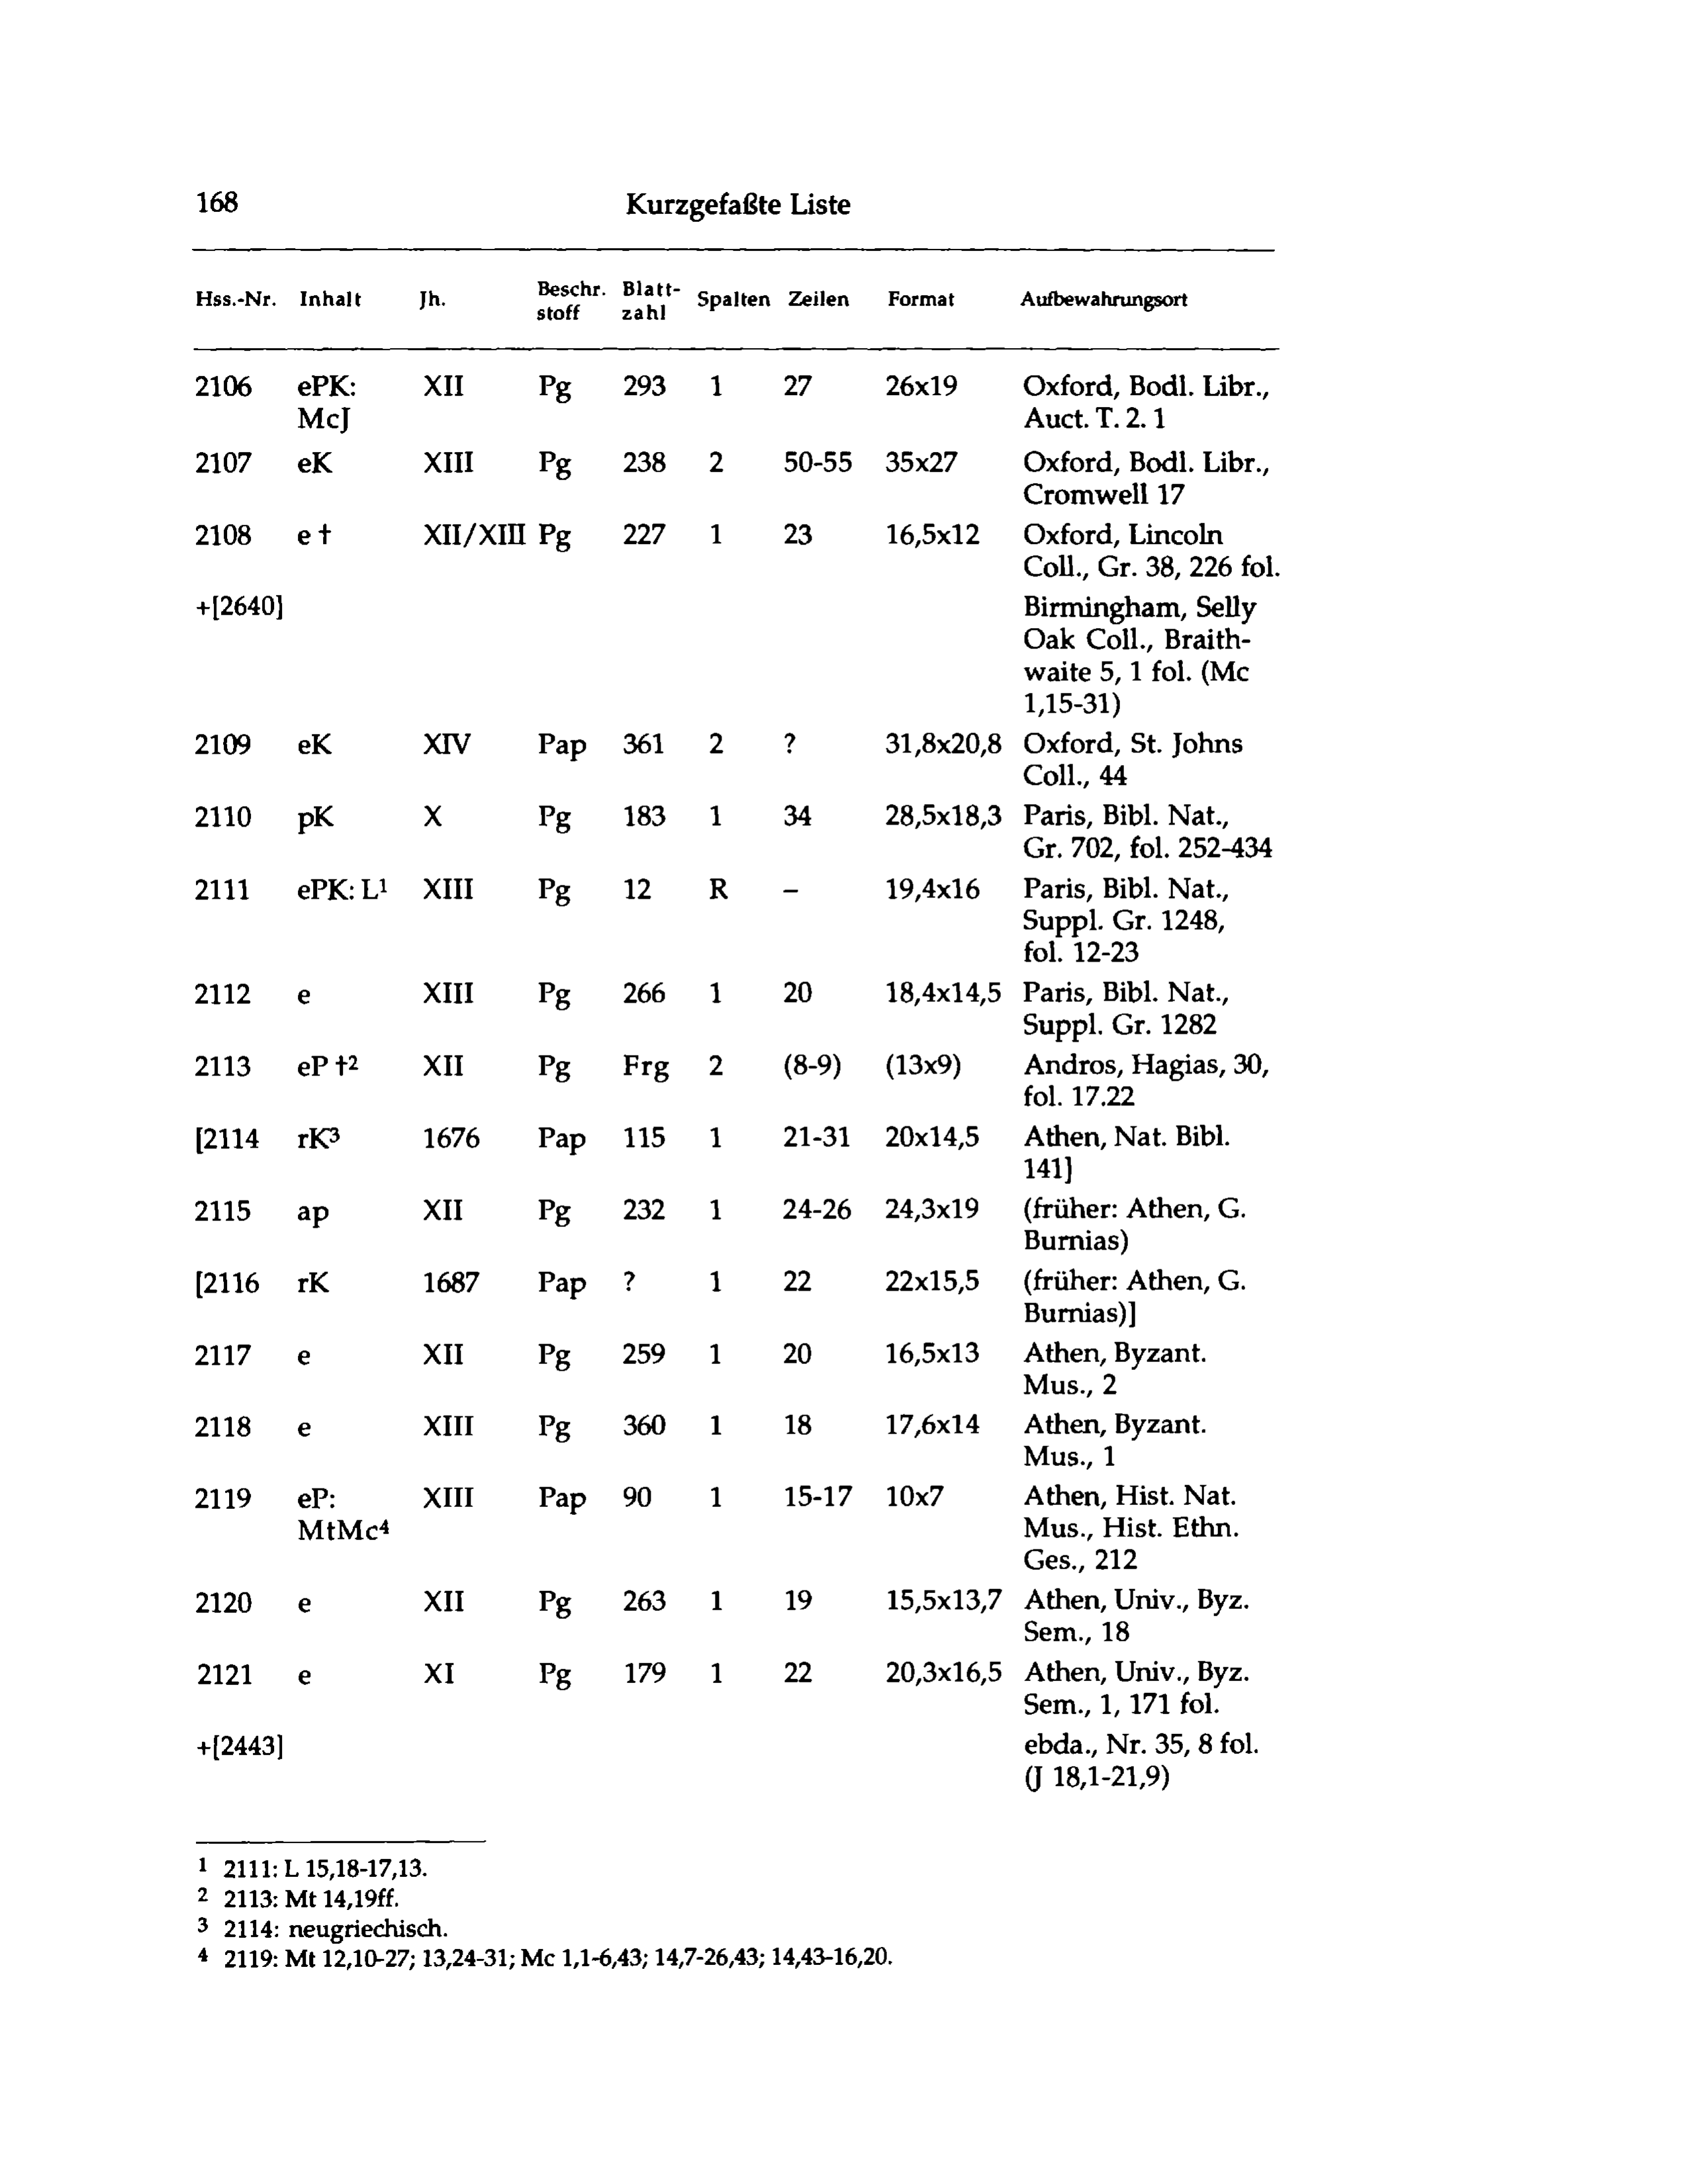 168 Kurzgefaßte Liste
Hss.-Nr. Inhalt Jh. Beschr. stoff Blatt- zahl Spalten Zeilen Format Aufbewahrungsort
2106 ePK: XII Pg 293 1 27 26x19 Oxford, Bodl. Libr.,
McJ Auct. T. 2. 1
2107 eK XIII Pg 238 2 50-55 35x27 Oxford, Bodl. Libr.,
Cromwell 17
2108 e † XII/XIII Pg 227 1 23 16,5x12 Oxford, Lincoln
Coll., Gr. 38, 226 fol.
+[2640] Birmingham, Selly
Oak Coll., Braith-
waite 5, 1 fol. (Mc
1,15-31)
2109 eK XIV Pap 361 2 ? 31,8x20,8 Oxford, St. Johns
Coll., 44
2110 pK X Pg 183 1 34 28,5x18,3 Paris, Bibl. Nat.,
Gr. 702, fol. 252-434
2111 ePK: L¹ XIII Pg 12 R – 19,4x16 Paris, Bibl. Nat.,
Suppl. Gr. 1248,
fol. 12-23
2112 e XIII Pg 266 1 20 18,4x14,5 Paris, Bibl. Nat.,
Suppl. Gr. 1282
2113 eP †² XII Pg Frg 2 (8-9) (13x9) Andros, Hagias, 30,
fol. 17.22
[2114 rK³ 1676 Pap 115 1 21-31 20x14,5 Athen, Nat. Bibl.
141]
2115 ap XII Pg 232 1 24-26 24,3x19 (früher: Athen, G.
Burnias)
[2116 rK 1687 Pap ? 1 22 22x15,5 (früher: Athen, G.
Burnias)]
2117 e XII Pg 259 1 20 16,5x13 Athen, Byzant.
Mus., 2
2118 e XIII Pg 360 1 18 17,6x14 Athen, Byzant.
Mus., 1
2119 eP: XIII Pap 90 1 15-17 10x7 Athen, Hist. Nat.
MtMc⁴ Mus., Hist. Ethn.
Ges., 212
2120 e XII Pg 263 1 19 15,5x13,7 Athen, Univ., Byz.
Sem., 18
2121 e XI Pg 179 1 22 20,3x16,5 Athen, Univ., Byz.
Sem., 1, 171 fol.
+[2443] ebda., Nr. 35, 8 fol.
(J 18,1-21,9)
¹ 2111: L 15,18-17,13.
² 2113: Mt 14,19ff.
³ 2114: neugriechisch.
⁴ 2119: Mt 12,10-27; 13,24-31; Mc 1,1-6,43; 14,7-26,43; 14,43-16,20.